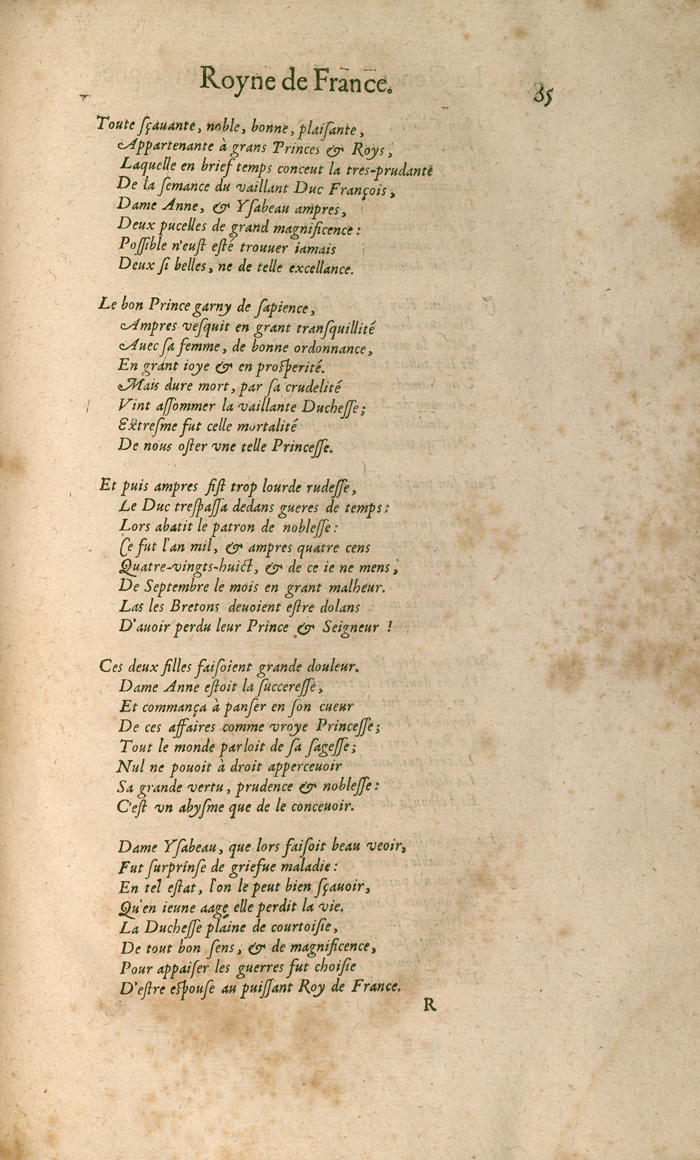 Royne de France.
85
Toute sçauante, noble, bonne, plaisante,
Appartenante à grans Princes & Roys,
Laquelle en brief temps conceut la tres-prudante
De la semance du vaillant Duc François,
Dame Anne, & Ysabeau ampres,
Deux pucelles de grand magnificence:
Possible n'eust esté trouuer iamais
Deux si belles, ne de telle excellance.

Le bon Prince garny de sapience,
Ampres vesquit en grant transquillité
Auec sa femme, de bonne ordonnance,
En grant ioye & en prosperité.
Mais dure mort, par sa crudelité
Vint assommer la vaillante Duchesse;
Extresme fut celle mortalité
De nous oster vne telle Princesse.

Et puis ampres fist trop lourde rudesse,
Le Duc trespassa dedans gueres de temps:
Lors abatit le patron de noblesse:
Ce fut l'an mil, & ampres quatre cens
Quatre-vingts-huict, & de ce ie ne mens,
De Septembre le mois en grant malheur.
Las les Bretons deuoient estre dolans
D'auoir perdu leur Prince & Seigneur !

Ces deux filles faisoient grande douleur.
Dame Anne estoit la succeresse,
Et commança à panser en son cueur
De ces affaires comme vroye Princesse;
Tout le monde parloit de sa sagesse;
Nul ne pouoit à droit apperceuoir
Sa grande vertu, prudence & noblesse:
C'est vn abysme que de le conceuoir.

Dame Ysabeau, que lors faisoit beau veoir,
Fut surprinse de griefue maladie:
En tel estat, l'on le peut bien sçauoir,
Qu'en ieune aage elle perdit la vie.
La Duchesse plaine de courtoisie,
De tout bon sens, & de magnificence,
Pour appaiser les guerres fut choisie
D'estre espouse au puissant Roy de France.
R